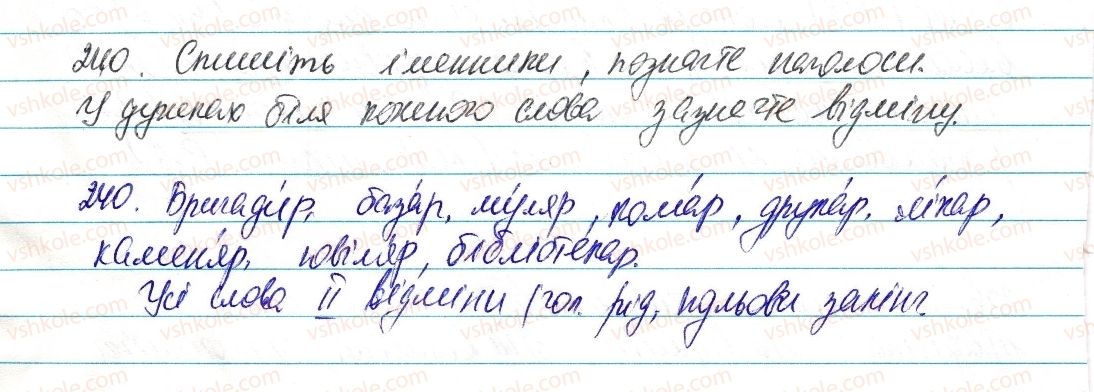 240. Спишіть іменники, позначте наголоси.
У дужках біля кожного слова зазначте відміну.
240. Бригади́р, база́р, му́ляр, кома́р, друка́р, лі́кар,
каменя́р, ювіля́р, бібліоте́кар.
Усі слова II відміни (чол. рід, нульови закінч.